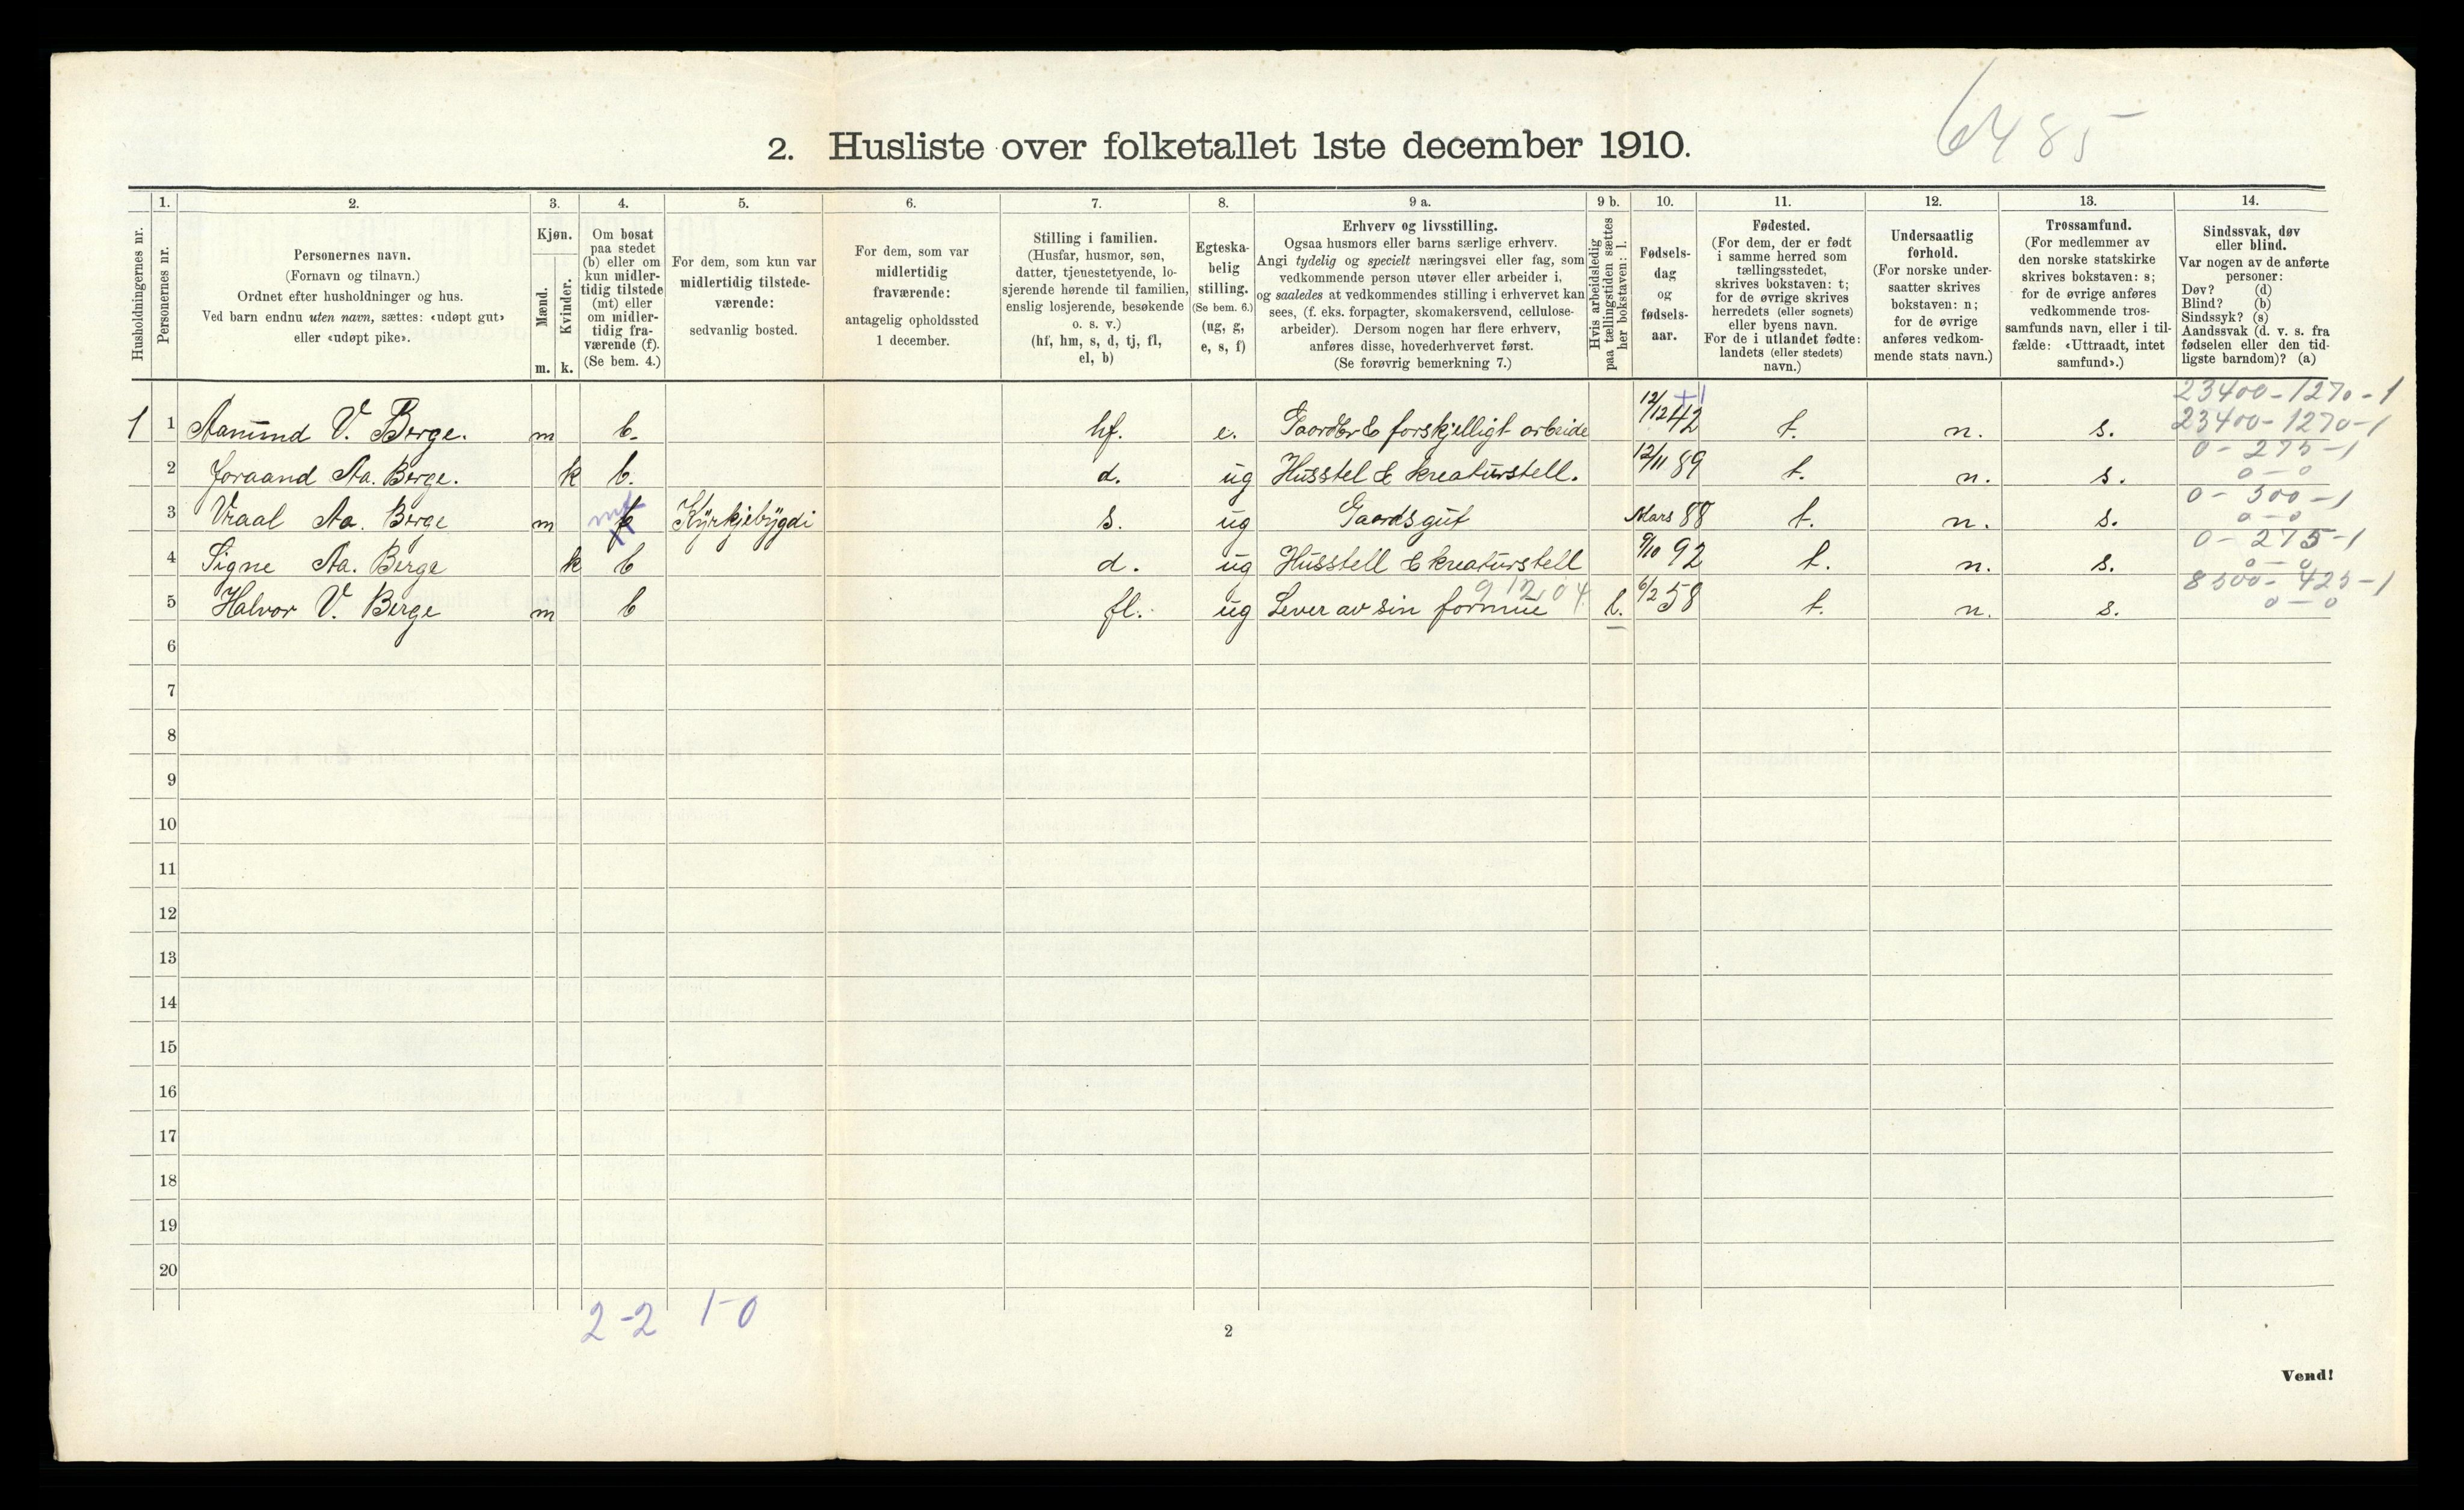 6485
2. Husliste over folketallet 1ste december 1910.
Husholdningernes nr.
1.
Personernes nr.
2.
Personernes navn.
(Fornavn og tilnavn.)
Ordnet efter husholdninger og hus.
Ved barn endnu uten navn, sættes: «udøpt gut»
eller «udøpt pike».
3.
Kjøn.
Mænd.
Kvinder.
m. k.
4.
Om bosat
paa stedet
(b) eller om
kun midler-
tidig tilstede
(mt) eller
om midler-
tidig fra-
værende (f).
(Se bem. 4.)
5.
For dem, som kun var
midlertidig tilstede-
værende:
sedvanlig bosted.
6.
For dem, som var
midlertidig
fraværende:
antagelig opholdssted
1 december.
7.
Stilling i familien.
(Husfar, husmor, søn,
datter, tjenestetyende, lo-
sjerende hørende til familien,
enslig losjerende, besøkende
o. s. v.)
(hf, hm, s, d, tj, fl,
el, b)
8.
Egteska-
belig
stilling.
(Se bem. 6.)
(ug, g,
e, s, f)
9 a.
Erhverv og livsstilling.
Ogsaa husmors eller barns særlige erhverv.
Angi tydelig og specielt næringsvei eller fag, som
vedkommende person utøver eller arbeider i,
og saaledes at vedkommendes stilling i erhvervet kan
sees, (f. eks. forpagter, skomakersvend, cellulose-
arbeider). Dersom nogen har flere erhverv,
anføres disse, hovederhvervet først.
(Se forøvrig bemerkning 7.)
9 b.
Hvis arbeidsledig
paa tællingstiden sættes
her bokstaven: l.
10.
Fødsels-
dag
og
fødsels-
aar.
11.
Fødested.
(For dem, der er født
i samme herred som
tællingsstedet,
skrives bokstaven: t;
for de øvrige skrives
herredets (eller sognets)
eller byens navn.
For de i utlandet fødte:
landets (eller stedets)
navn.)
12.
Undersaatlig
forhold.
(For norske under-
saatter skrives
bokstaven: n;
for de øvrige
anføres vedkom-
mende stats navn.)
13.
Trossamfund.
(For medlemmer av
den norske statskirke
skrives bokstaven: s;
for de øvrige anføres
vedkommende tros-
samfunds navn, eller i til-
fælde: «Uttraadt, intet
samfund».)
14.
Sindssvak, døv
eller blind.
Var nogen av de anførte
personer:
Døv? (d)
Blind? (b)
Sindssyk? (s)
Aandssvak (d. v. s. fra
fødselen eller den tid-
ligste barndom)? (a)
23400-1270-1
1 1 Aamund V. Berge. m b. hf. e. forskjelligt arbeide 12/12 42 t. n. s. 23400-1270-1
0-275-1
2 Joraand Aa. Berge. k b. d. ug Husstel & kreaturstell. 12/11 89 t. n. s. 0-0
0-500-1
3 Vraal Aa. Berge m mt Kyrkjebygdi s. ug Gaardsgut Mars 88 t. n. s. 0-0
0-275-1
4 Signe Aa. Berge k b d. ug Husstell & kreaturstell 9/10 92 t. n. s. 0-0
8500-425-1
5 Halvor V. Berge m b fl. ug Lever av sin formue l. 6/2 58 t. n. s. 0-0
6
7
8
9
10
11
12
13
14
15
16
17
18
19
20
2-2 1-0
2
Vend!